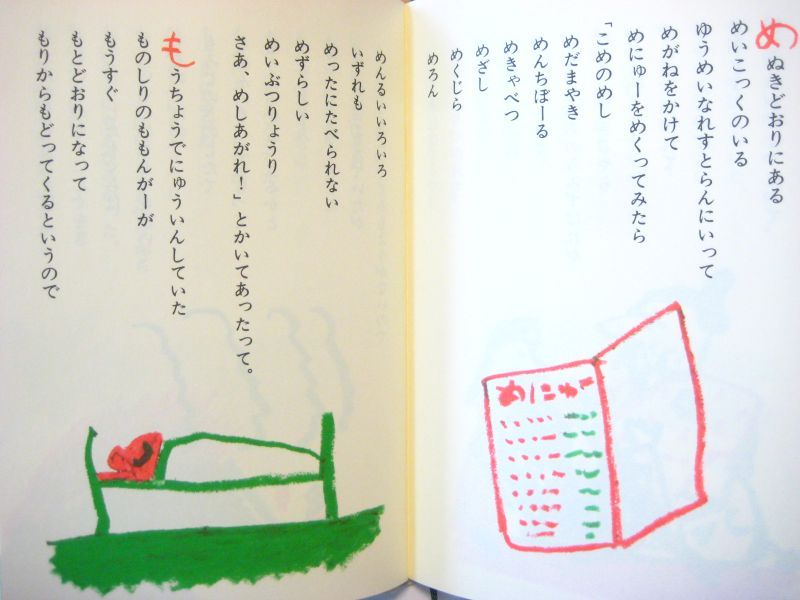 めぬきどおりにある
めいこっくのいる
ゆうめいなれすとらんにいって
めがねをかけて
めにゅーをめくってみたら
「こめのめし
めだまやき
めんちぼーる
めきゃべつ
めざし
めくじら
めろん
めんるいいろいろ
いずれも
めったにたべられない
めずらしい
めいぶつりょうり
さあ、めしあがれ！」とかいてあったって。
もうちょうでにゅういんしていた
ものしりのももんがーが
もうすぐ
もとどおりになって
もりからもどってくるというので
めにゅー